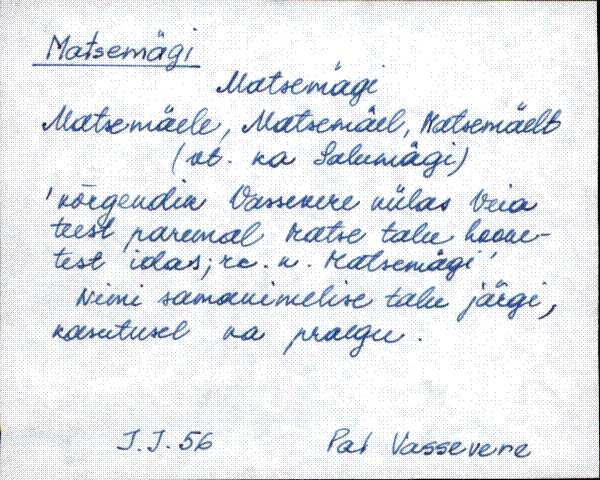 Matsemägi
Matsemägi
Matsemäele, Matsemäel, Matsemäelt
(vt. ka Salumägi)
'kõrgendik Vassevere külas Veia
teest paremal Matse talu hoone-
test idas; r. n. Matsemägi'
Nimi samanimelise talu järgi,
kasutusel ka praegu.
J.J. 56 Pal Vassevere